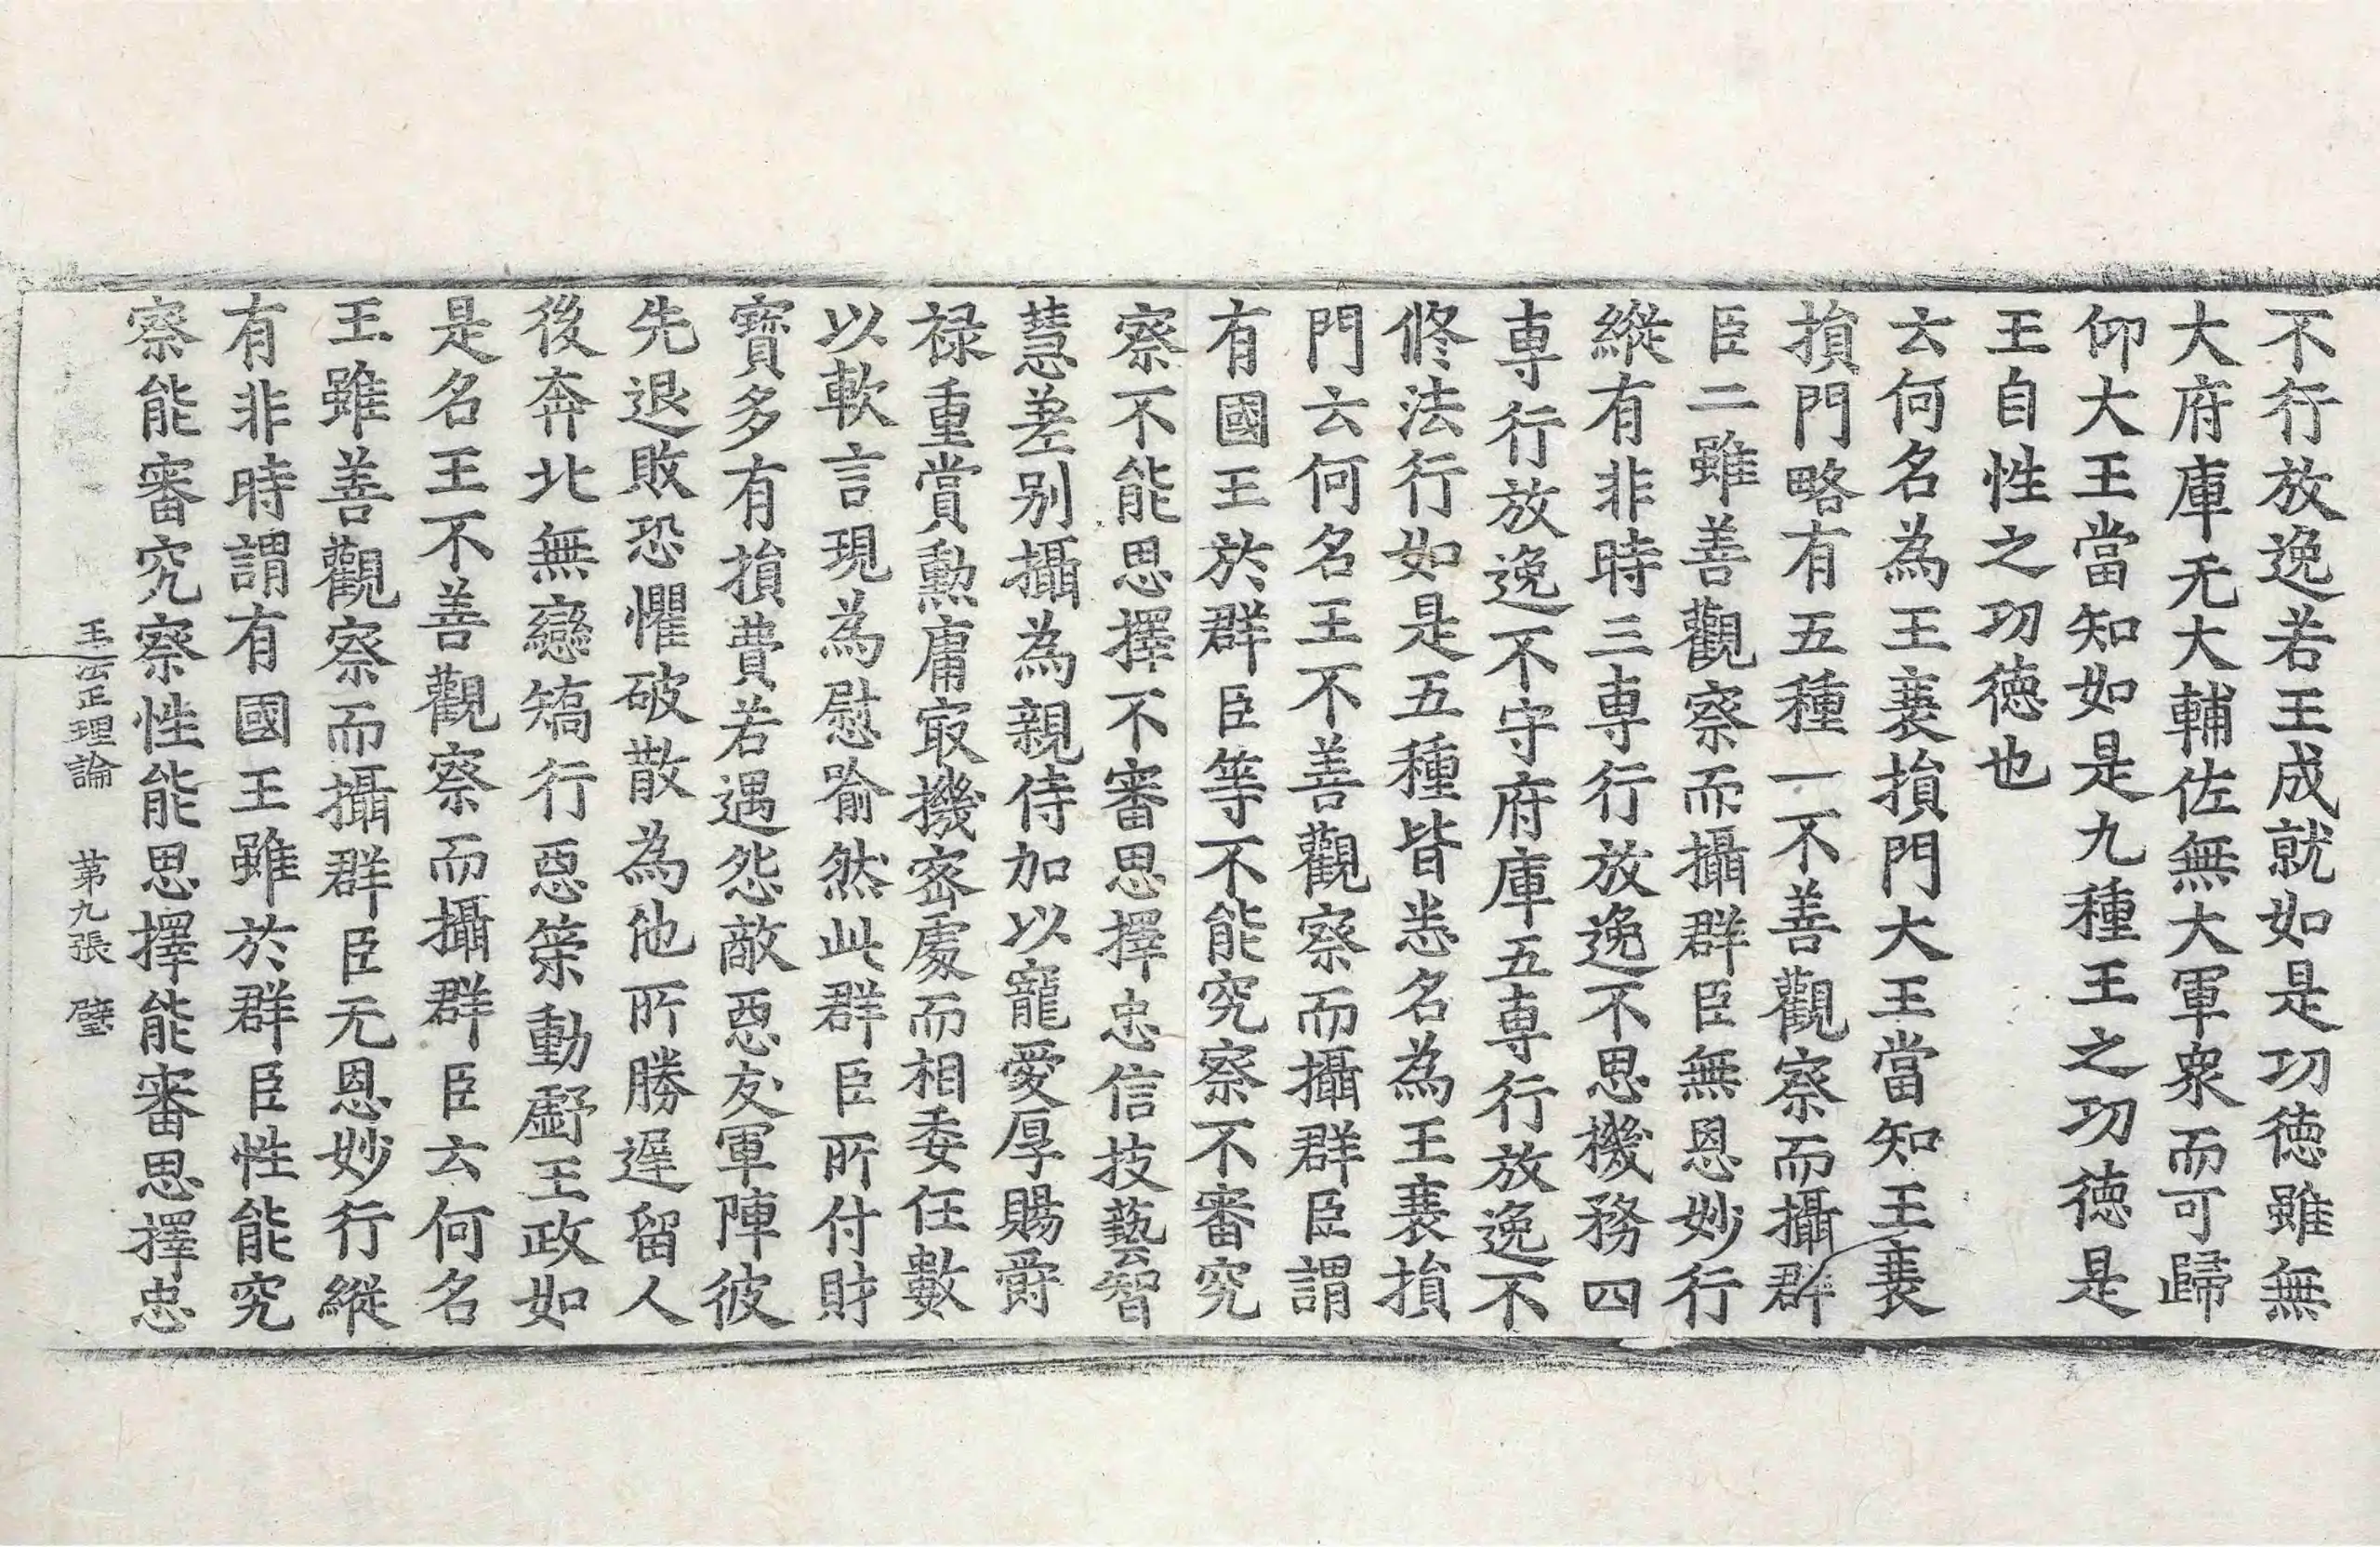 不行放逸若王成就如是功徳雖無
大府庫无大輔佐無大軍衆而可歸
仰大王當知如是九種王之功徳是
王自性之功徳也
云何名為王衰損門大王當知王衰
損門略有五種一不善觀察而攝群
臣二雖善觀察而攝群臣無恩妙行
縱有非時三専行放逸不思機務四
専行放逸不守府庫五専行放逸不
修法行如是五種皆悉名為王衰損
門云何名王不善觀察而攝群臣謂
有國王於群臣等不能究察不審究
察不能思擇不審思擇忠信技藝智
慧差别攝為親侍加以寵愛厚賜爵
禄重賞勳庸㝡機宻處而相委任數
以軟言現為慰喻然此群臣所付財
寶多有損費若遇怨敵惡友軍陣彼
先退敗恐懼破散為他所勝遅留人
後奔北無戀矯行惡策動虧王政如
是名王不善觀察而攝群臣云何名
王雖善觀察而攝群臣无恩妙行縱
有非時謂有國王雖於群臣性能究
察能審究察性能思擇能審思擇忠
王法正理論　第九張　璧